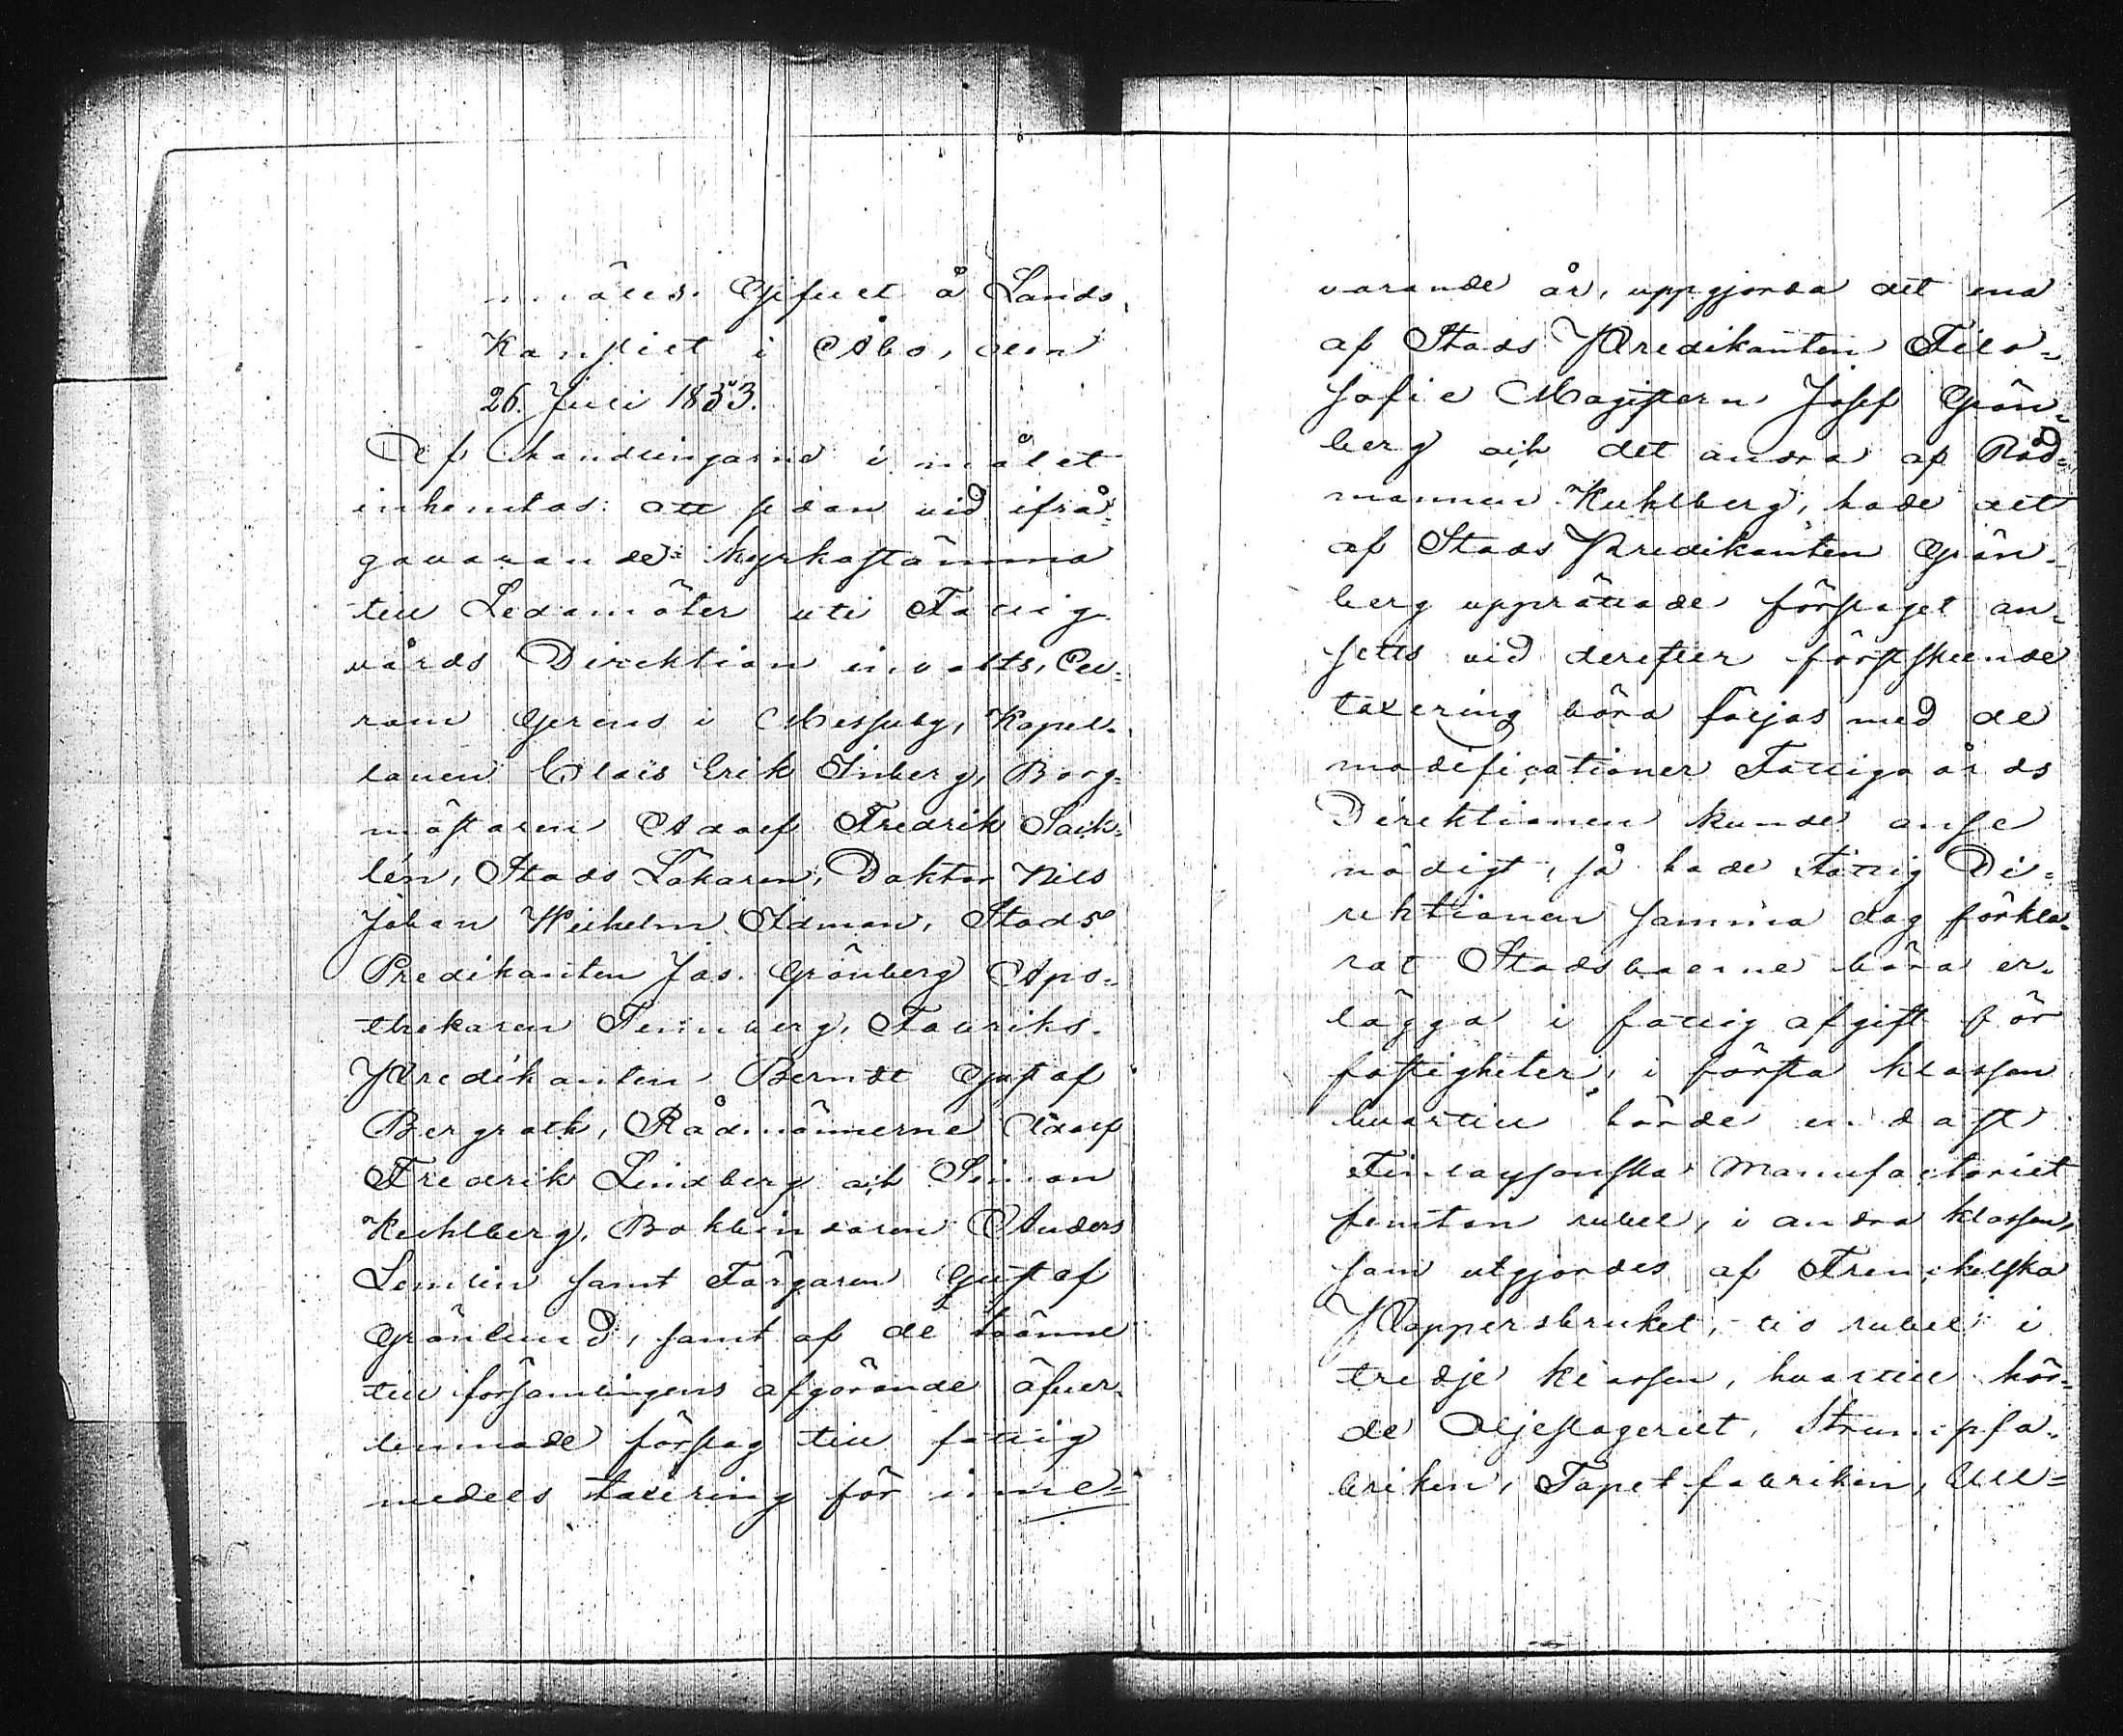 Gifvet å Lands
Kansliet i Åbo, den
26. Juli 1853.
Af handlingarne i målet
inhemtas: att sedan vid ifrå-
gavarande kyrkostämma
till Ledamöter uti Fattig
vårds Direktion invalts, Cu-
ram Gerens i Messuby, Kapel-
lanen Clais Erik Inberg, Borg-
mästaren Adolf Fredrik Sack-
lén, Stads Läkaren, Doktor Nils
Johan Wilhelm Idman, Stads
Predikanten Jos. Grönberg Apo-
thekaren Tennberg, Fabriks-
Predikanten Berndt Gustaf
Bergroth, Rådmännerne Adolf
Fredrik Lindberg och Simon
Kuhlberg, Bokbindaren Anders
Lemlin samt Färgaren Gustaf
Grönlund, samt af de tvänne
till församlingens afgörande öfver-
lemnade förslag till fattig
medels taxering för inne-
varande år, uppgjorda det ena
af Stads Predikanten Filo-
sofie Magistern Josef Grön-
berg och det andra af Råd-
mannen Kuhlberg, hade det
af Stads Predikanten Grön-
berg upprättade förslaget an-
setts vid derefter förstskeende
taxering böra följas med de
modificationer Fattigvårds
Direktionen kunde anse
nödigt, så hade Fattig Di-
rektionen samma dag förkla-
rat Stadsboerne böra er-
lägga i fattig afgift för
fastigheter, i första klassen
hvartill hörde endast
Finlaysonska Manufactoriet
femton rubel, i andra klassen,
som utgjordes af Frenckelska
Pappersbruket, tio rubel i
tredje klassen, hvartill hör-
de Oljeslageriet, Strumpfa-
briken, Tapetfabriken, Ull-